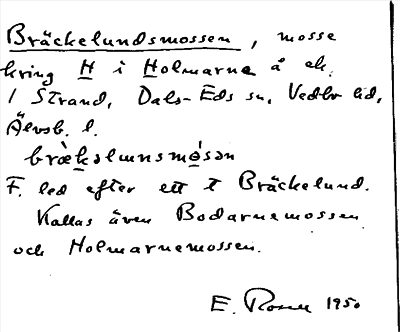 Bräckelundsmossen, mosse
kring H i Holmarna å ek.
1 Strand, Dals-Eds sn, Vedbo hd,
Älvsb. l.
bræ̀kəlunsmósən
F. led efter ett t Bräckelund.
Kallas även Bodarnemossen
och Holmarnemossen.
E. Rosen 1950